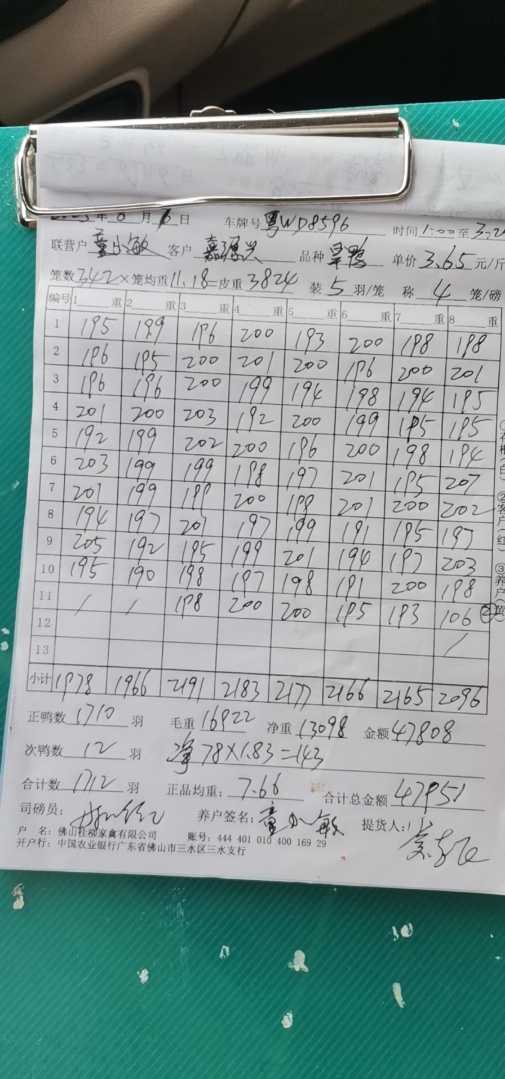 年 6 月 6 日 车牌号 粤WD8596 时间 1:00 至
联营户 童小敏 客户 嘉源兴 品种 旱鸭 单价 3.65 元/斤
笼数 342 × 笼均重 11.18 = 皮重 3824 装 5 羽/笼 称 4 笼/磅
编号 1 重 2 重 3 重 4 重 5 重 6 重 7 重 8 重
1 195 199 196 200 193 200 198 198
2 196 195 200 201 200 196 200 201
3 196 196 200 199 194 198 194 195
4 201 200 203 192 200 199 195 195
5 192 199 202 200 196 200 198 194
6 203 199 199 198 197 201 195 207
7 201 199 199 200 198 201 200 202
8 194 197 201 197 199 191 195 197
9 205 192 195 199 201 194 197 203
10 195 190 198 197 198 191 200 198
11 / / 198 200 200 195 193 106 ②
12 /
13
小计 1978 1966 2191 2183 2177 2166 2165 2096
正鸭数 1710 羽 毛重 16922 净重 13098 金额 47808
次鸭数 12 羽 净 78×1.83=143
合计数 1712 羽 正品均重: 7.66 合计总金额 47951
司磅员: 养户签名: 童小敏 提货人:
户 名: 佛山 家禽有限公司 账号: 444 401 010 400 169 29
开户行: 中国农业银行广东省佛山市三水区三水支行
②客户(红) ③养户(黄)